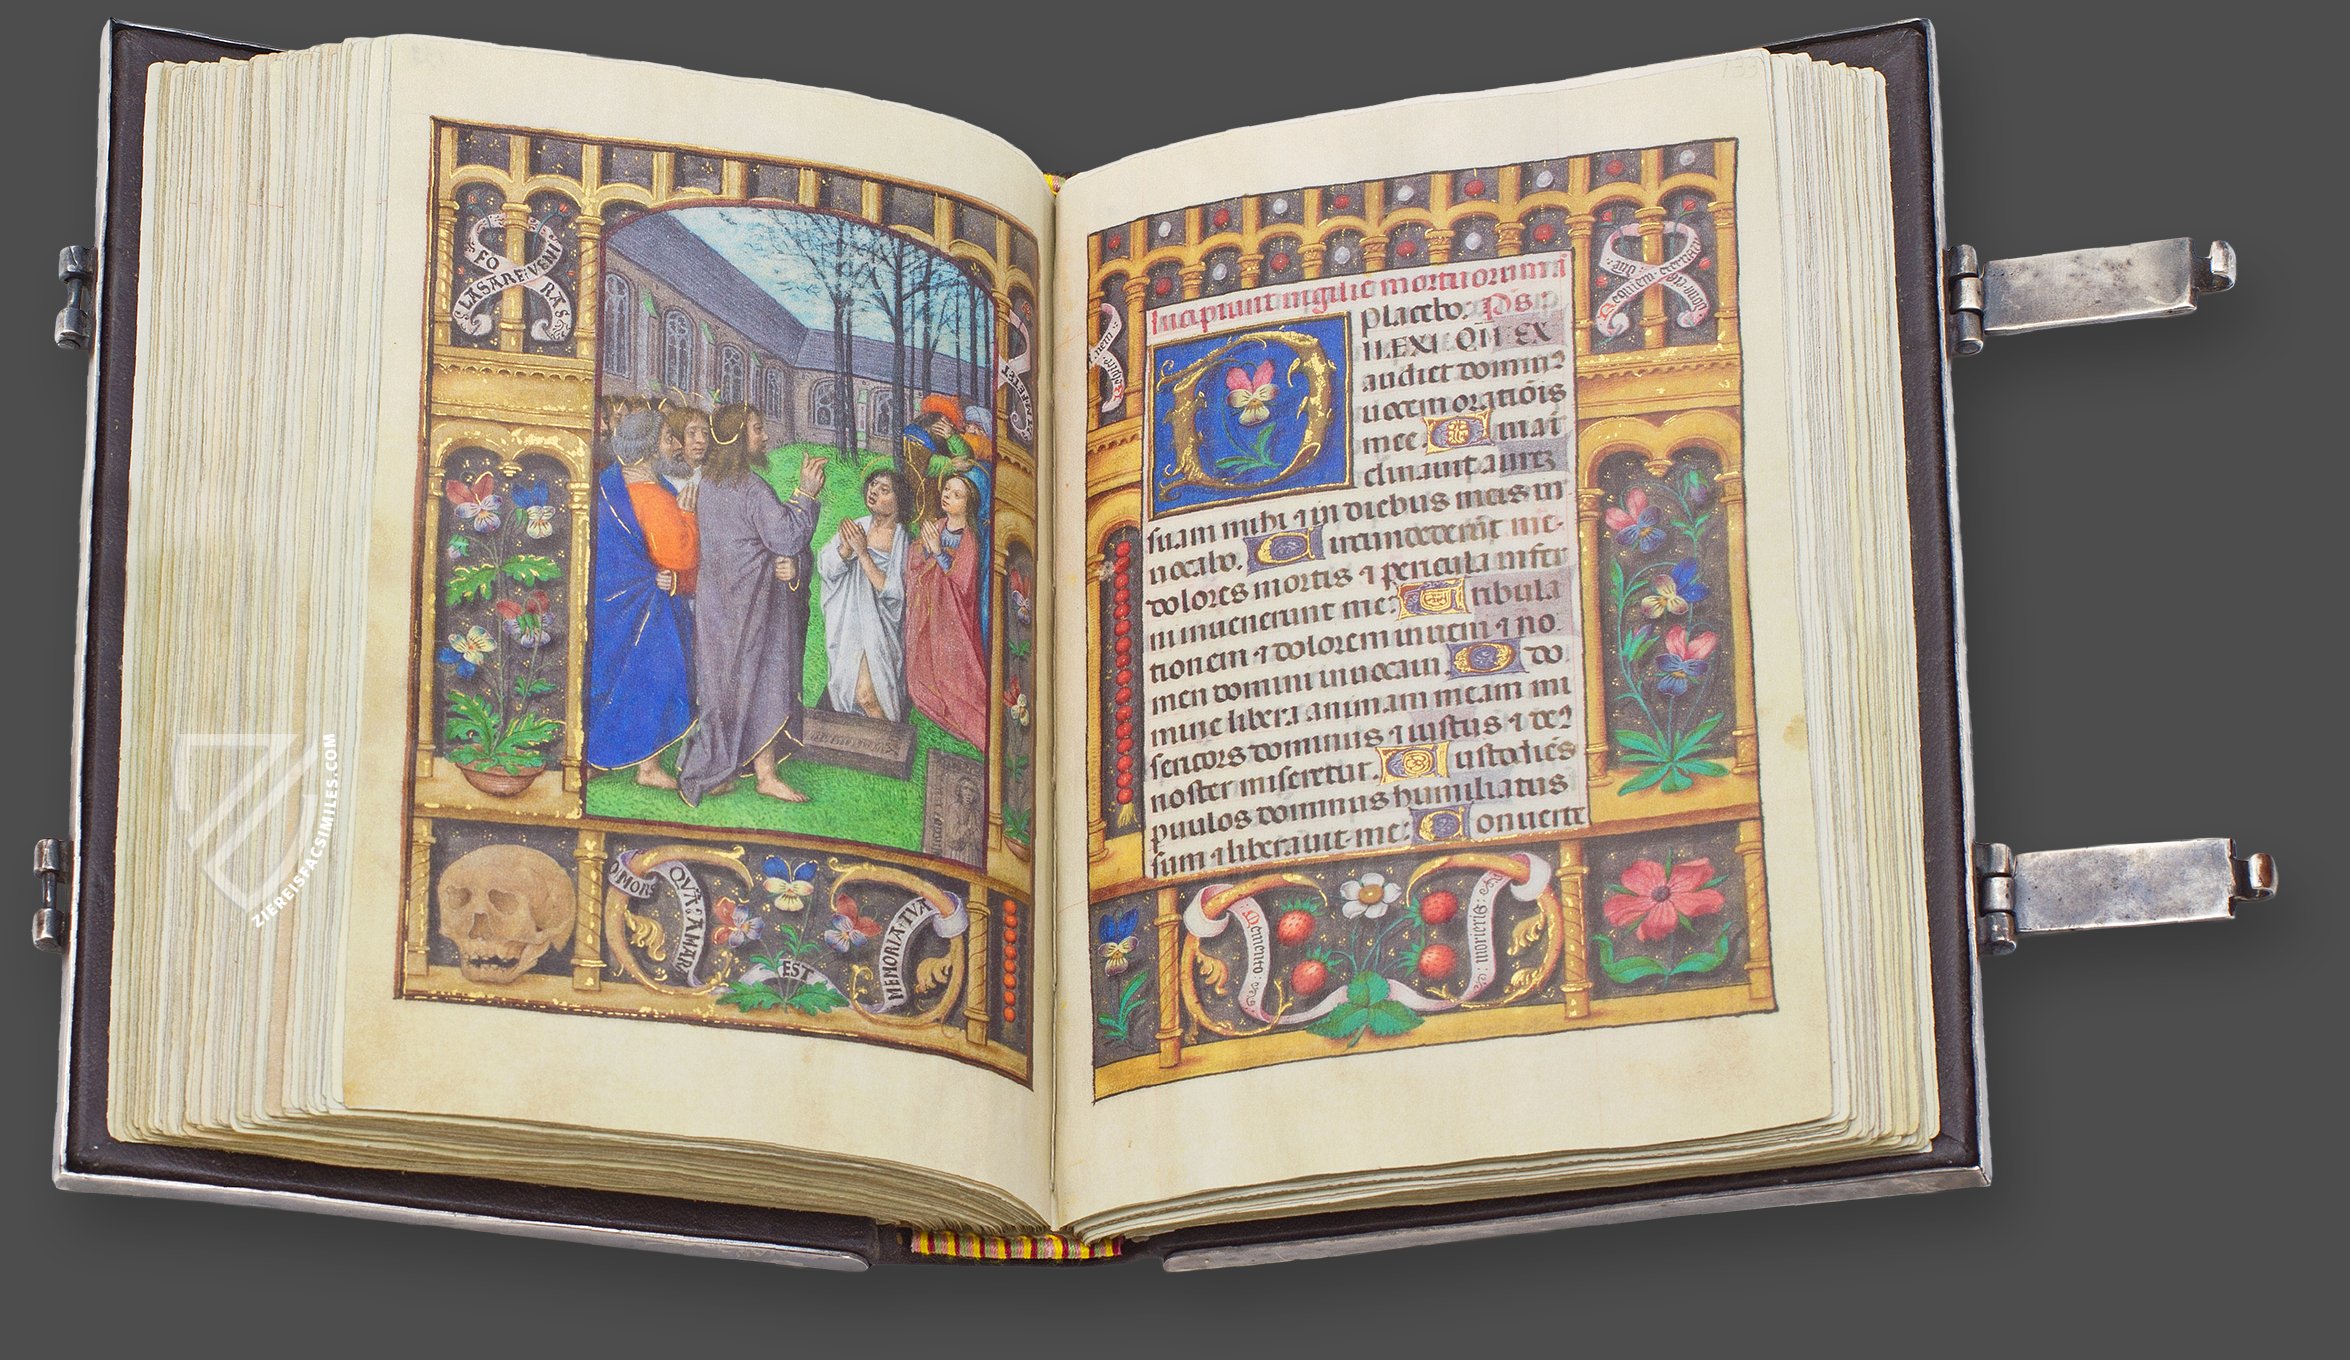 LASARE·VENI
FORAS
O MORS
QVA·AMARA
EST
MEMORIA·TVA
Incipiunt vigilie mortuorum an
Placebo. Ps
ILEXI QM EX
audiet dominꝰ
uocem orationis
mee. Quia in
clinauit aurē
suam mihi ⁊ in diebus meis in
uocabo. Circundederūt me
dolores mortis ⁊ pericula infer
ni inuenerunt me: Tribula
tionem ⁊ dolorem inueni ⁊ no
men domini inuocaui. O do
mine libera animam meam mi
sericors dominus ⁊ iustus ⁊ deꝰ
noster miseretur. Custodiēs
paruulos dominus humiliatus
sum ⁊ liberauit me: Conuerte
Requiem
Memento:
morieris:
133
ZIEREISFACSIMILES.COM